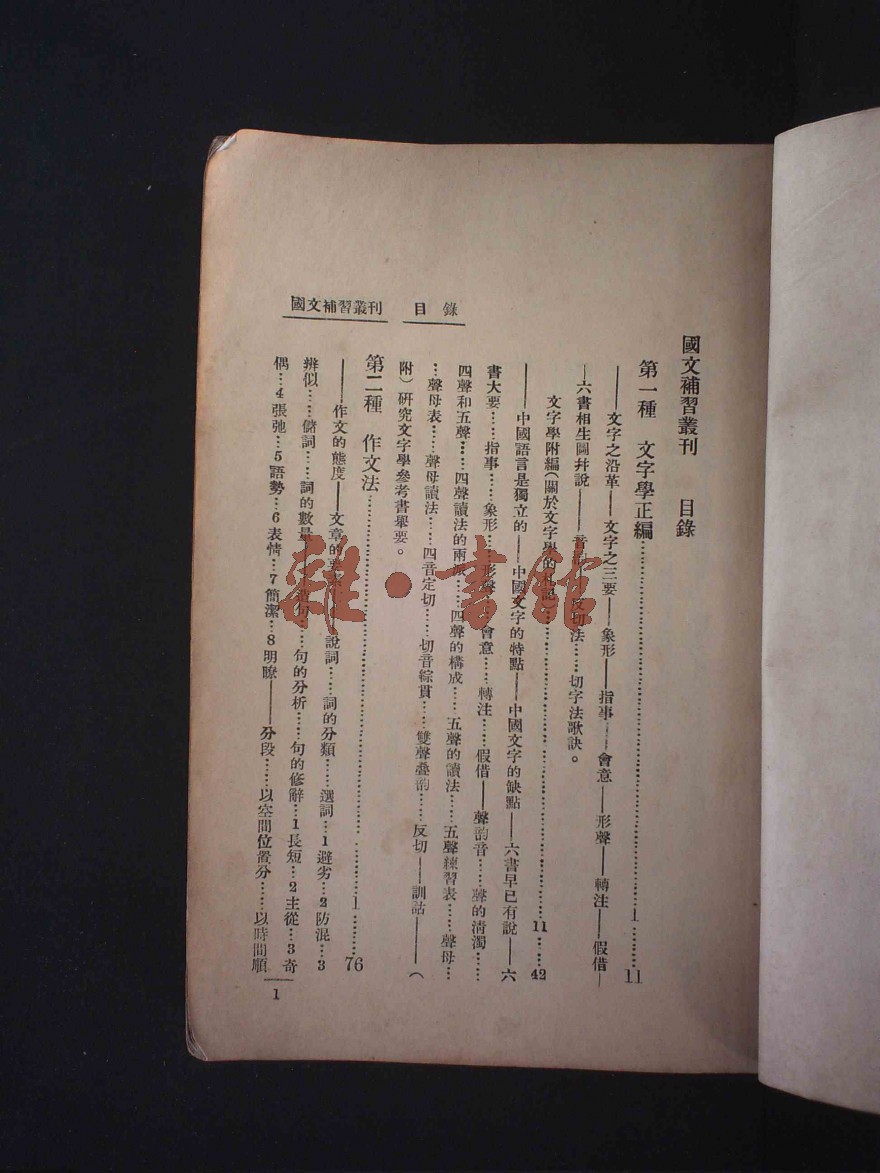 國文補習叢刊　目錄
國文補習叢刊　目錄
第一種　文字學正編………1……11
——文字之沿革——文字之三要——象形——指事——會意——形聲——轉注——假借—
—六書相生圖幷說——音韵——反切法……切字法歌訣。
文字學附編(關於文字學的札記)………11……42
——中國語言是獨立的——中國文字的特點——中國文字的缺點——六書早已有說——六
書大要……指事……象形…形聲……會意……轉注……假借——聲韵音……聲的淸濁……
四聲和五聲……四聲讀法的兩派……四聲的構成……五聲的讀法……五聲練習表……聲母…
…聲母表……聲母讀法……四音定切……切音綜貫……雙聲叠韵……反切——訓詁——（
附）硏究文字學參考書舉要。
第二種　作文法………1……76
——作文的態度——文章的要素——說詞……詞的分類……選詞…1避劣…2防混…3
辨似……儲詞……詞的數量——造句……句的分析……句的修辭…1長短…2主從…3奇
偶…4張弛…5語勢…6表情…7簡潔…8明瞭——分段……以空間位置分……以時間順
1
雜·書館